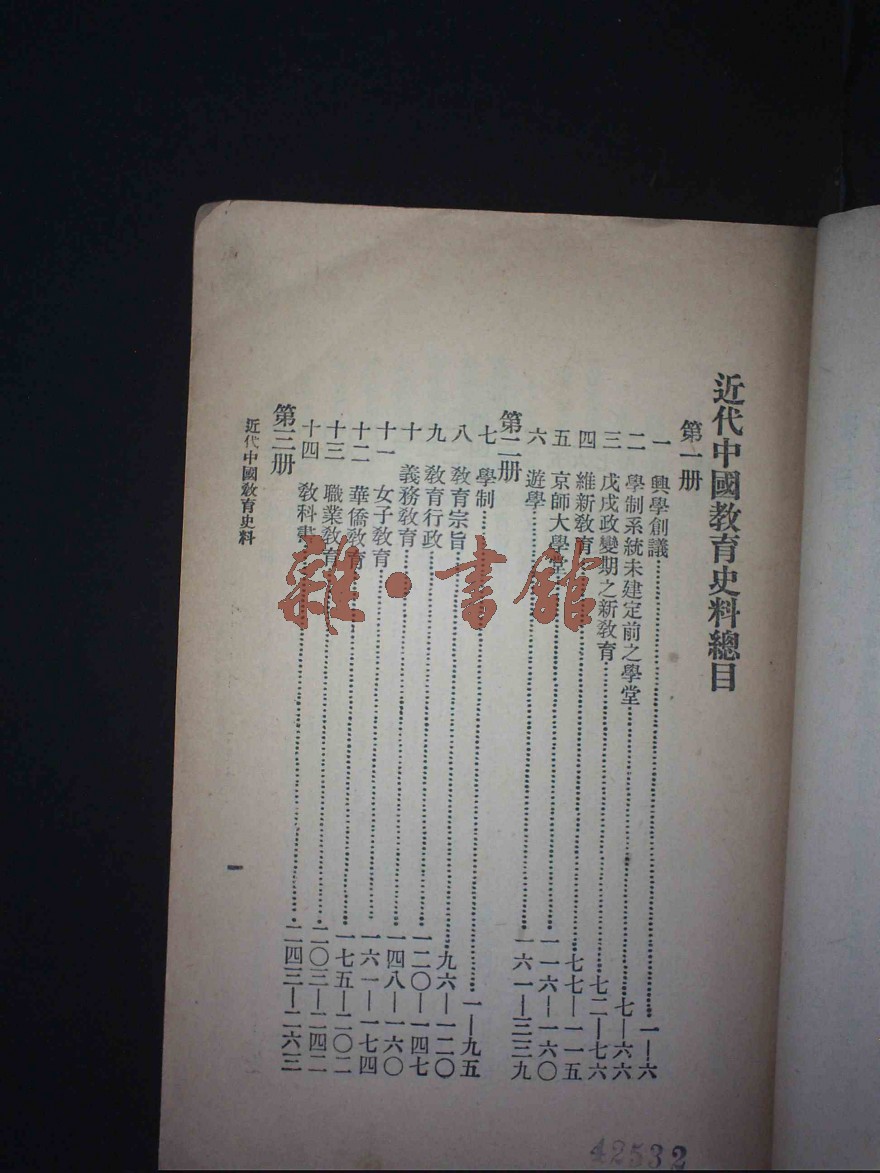 近代中國教育史料總目
第一册
一 興學創議……一—六
二 學制系統未建定前之學堂……七—六六
三 戊戌政變期之新教育……七二—七六
四 維新教育……七七—一一五
五 京師大學堂……一一六—一六〇
六 遊學……一六一—三三九
第二册
七 學制……一—九五
八 教育宗旨……九六—一二〇
九 教育行政……一二〇—一四七
十 義務教育……一四八—一六〇
十一 女子教育……一六一—一七四
十二 華僑教育……一七五—二〇二
十三 職業教育……二〇三—二四二
十四 教科書……二四三—二六三
第三册
近代中國教育史料
一
雜·書館
42532